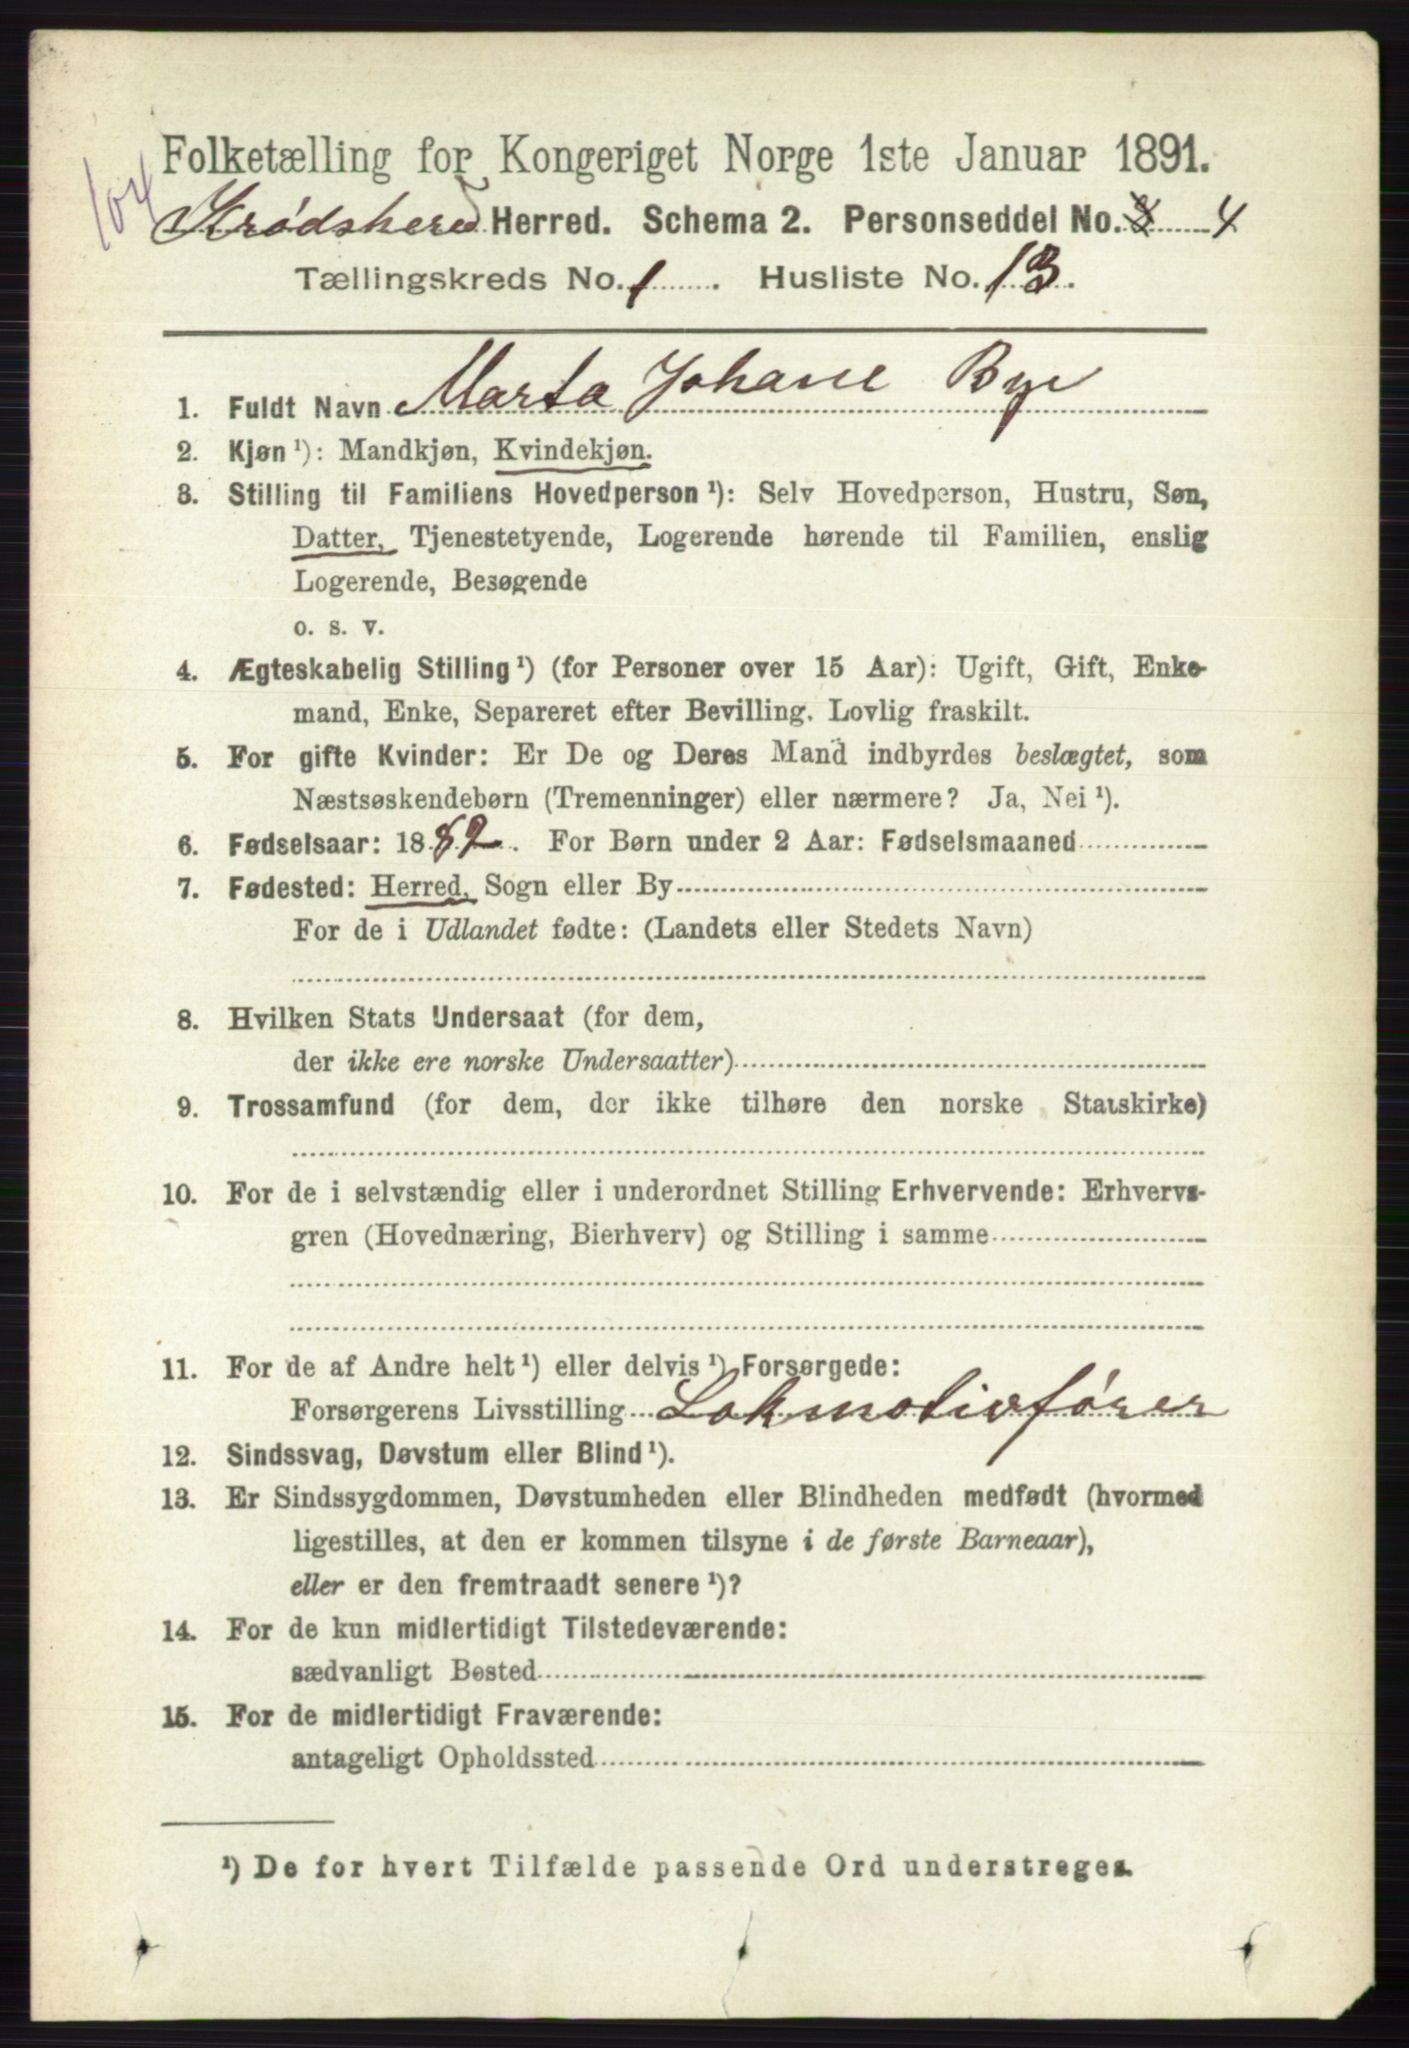 104
Folketælling for Kongeriget Norge 1ste Januar 1891.
Krødsherred Herred. Schema 2. Personseddel No. 4
Tællingskreds No. 1. Husliste No. 13.
1. Fuldt Navn Marta Johane Bye
2. Kjøn¹): Mandkjøn, Kvindekjøn.
3. Stilling til Familiens Hovedperson¹): Selv Hovedperson, Hustru, Søn,
Datter, Tjenestetyende, Logerende hørende til Familien, enslig
Logerende, Besøgende
o. s. v.
4. Ægteskabelig Stilling¹) (for Personer over 15 Aar): Ugift, Gift, Enke-
mand, Enke, Separeret efter Bevilling. Lovlig fraskilt.
5. For gifte Kvinder: Er De og Deres Mand indbyrdes beslægtet, som
Næstsøskendebørn (Tremenninger) eller nærmere? Ja, Nei¹).
6. Fødselsaar: 1882. For Børn under 2 Aar: Fødselsmaaned
7. Fødested: Herred, Sogn eller By
For de i Udlandet fødte: (Landets eller Stedets Navn)
8. Hvilken Stats Undersaat (for dem,
der ikke ere norske Undersaatter)
9. Trossamfund (for dem, der ikke tilhøre den norske Statskirke)
10. For de i selvstændig eller i underordnet Stilling Erhvervende: Erhvervs-
gren (Hovednæring, Bierhverv) og Stilling i samme
11. For de af Andre helt¹) eller delvis¹) Forsørgede:
Forsørgerens Livsstilling Lokmotivfører
12. Sindssvag, Døvstum eller Blind¹).
13. Er Sindssygdommen, Døvstumheden eller Blindheden medfødt (hvormed
ligestilles, at den er kommen tilsyne i de første Barneaar),
eller er den fremtraadt senere¹)?
14. For de kun midlertidigt Tilstedeværende:
sædvanligt Bosted
15. For de midlertidigt Fraværende:
antageligt Opholdssted
¹) De for hvert Tilfælde passende Ord understreges.